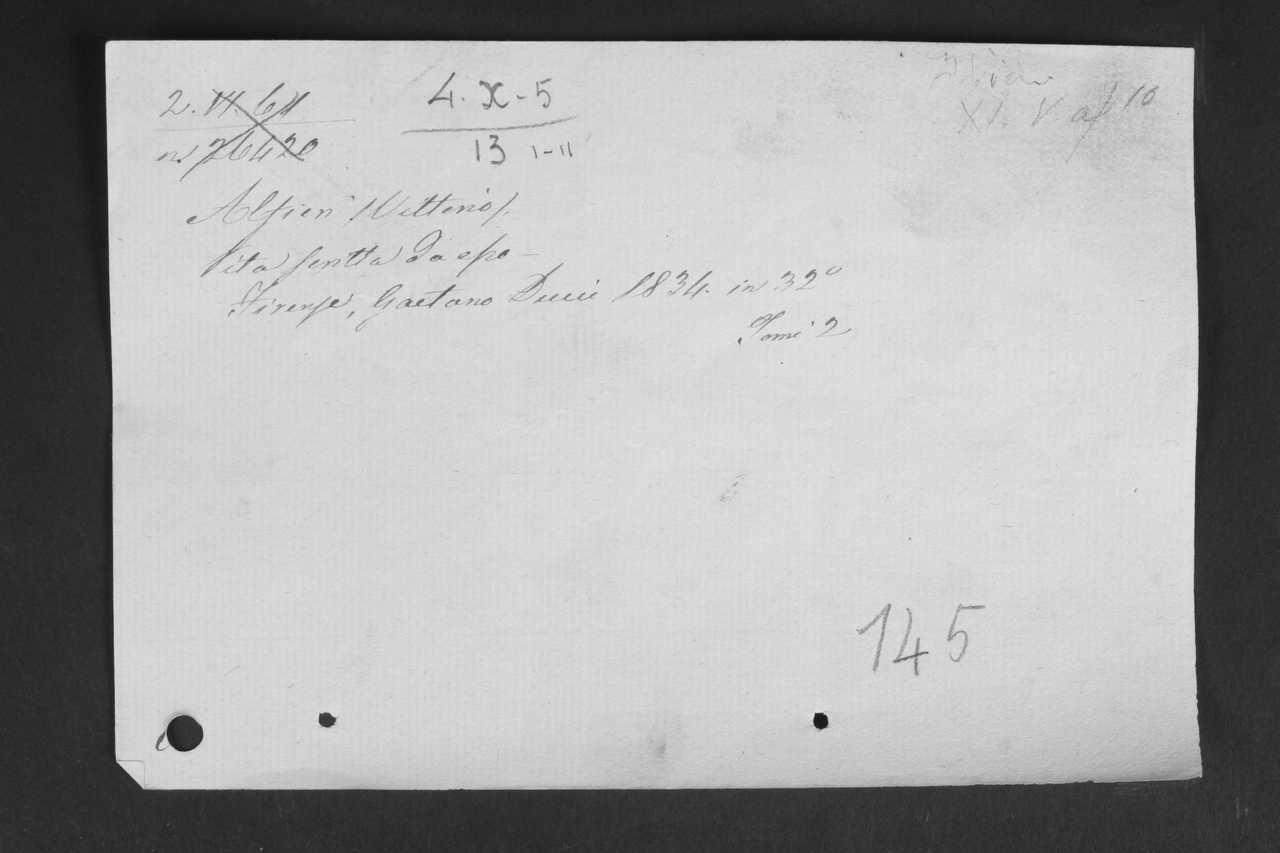 2. VI. 61
4. X - 5
n. 26420
13 I-II
XI. V. a/ 10
Alfieri (Vittorio).
Vita scritta da esso -
Firenze, Gaetano Ducci 1834. in 32º
Tomi 2
145